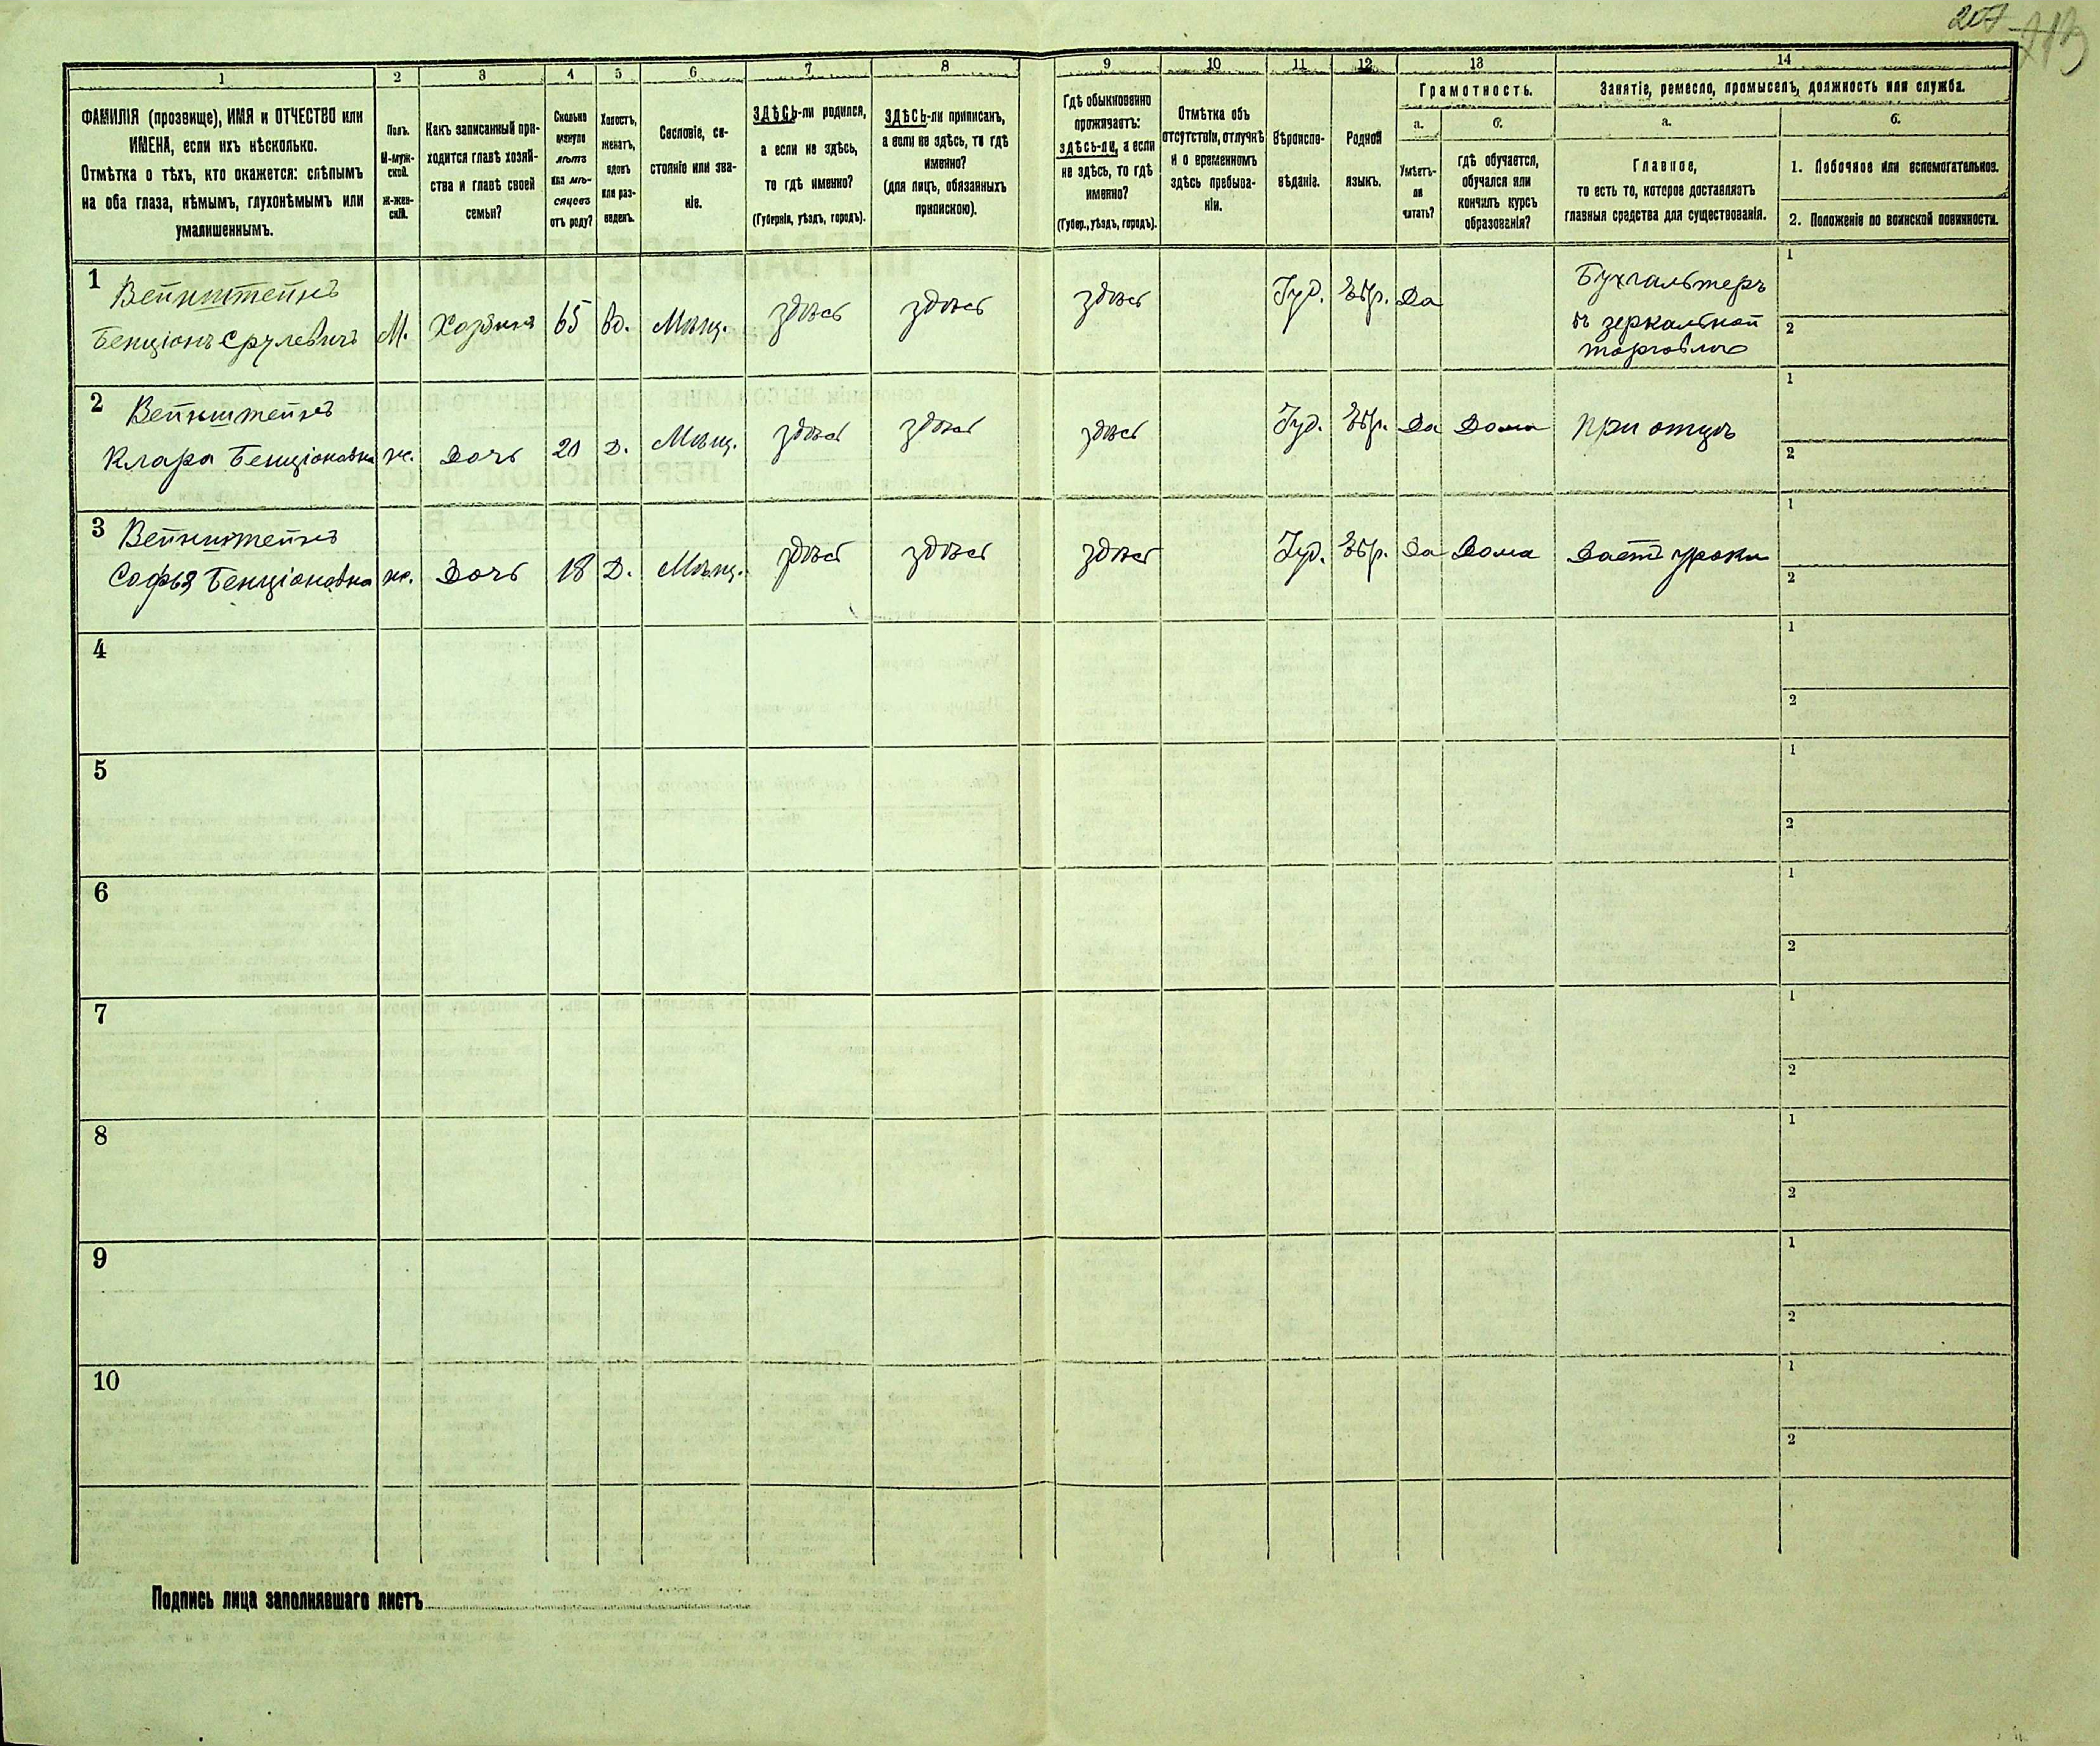 207
1
2
3
4
5
6
7
8
9
10
11
12
13
14
ФАМИЛІЯ (прозвище), ИМЯ и ОТЧЕСТВО или
ИМЕНА, если ихъ нѣсколько.
Отмѣтка о тѣхъ, кто окажется: слѣпымъ
на оба глаза, нѣмымъ, глухонѣмымъ или
умалишеннымъ.
Полъ.
М-муж-
ской.
Ж-жен-
скій.
Какъ записанный при-
ходится главѣ хозяй-
ства и главѣ своей
семьи?
Сколько
минуло
лѣтъ
или мѣ-
сяцевъ
отъ роду?
Холостъ,
женатъ,
вдовъ
или раз-
веденъ.
Сословіе, со-
стояніе или зва-
ніе.
ЗДѢСЬ-ли родился,
а если не здѣсь,
то гдѣ именно?
(Губернія, уѣздъ, городъ).
ЗДѢСЬ-ли приписанъ,
а если не здѣсь, то гдѣ
именно?
(для лицъ, обязанныхъ
припискою).
Гдѣ обыкновенно
проживаетъ:
здѣсь-ли, а если
не здѣсь, то гдѣ
именно?
(Губер., уѣздъ, городъ).
Отмѣтка объ
отсутствіи, отлучкѣ
и о временномъ
здѣсь пребыва-
ніи.
Вѣроиспо-
вѣданіе.
Родной
языкъ.
Грамотность.
а.
Умѣетъ-
ли
читать?
б.
гдѣ обучается,
обучался или
кончилъ курсъ
образованія?
Занятіе, ремесло, промыселъ, должность или служба.
а.
Главное,
то есть то, которое доставляетъ
главныя средства для существованія.
б.
1. Побочное или вспомогательное.
2. Положеніе по воинской повинности.
1 Вейнштейнъ
Бенціонъ Срулевичъ М. Хозяинъ 65 Вд. Мѣщ. здѣсь здѣсь здѣсь Іуд. Евр. Да
Бухгалтеръ
въ зеркальной
торговлѣ
1
2
2 Вейнштейнъ
Клара Бенціоновна ж. Дочь 20 Д. Мѣщ. здѣсь здѣсь здѣсь Іуд. Евр. Да Дома при отцѣ
1
2
3 Вейнштейнъ
Софья Бенціоновна ж. Дочь 18 Д. Мѣщ. здѣсь здѣсь здѣсь Іуд. Евр. Да Дома Даетъ уроки
1
2
4
1
2
5
1
2
6
1
2
7
1
2
8
1
2
9
1
2
10
1
2
Подпись лица заполнявшаго листъ